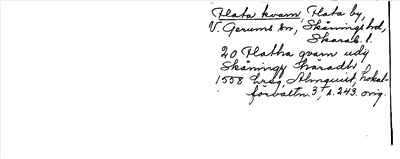 Flata kvarn, Flata by,
V. Gerums sn, Skånings hd,
Skarab. l.
20 Flatha qvarn udj
Skåningz häradt
1558 Almquist, Lokal-
förvaltn. 3, s. 243. orig.